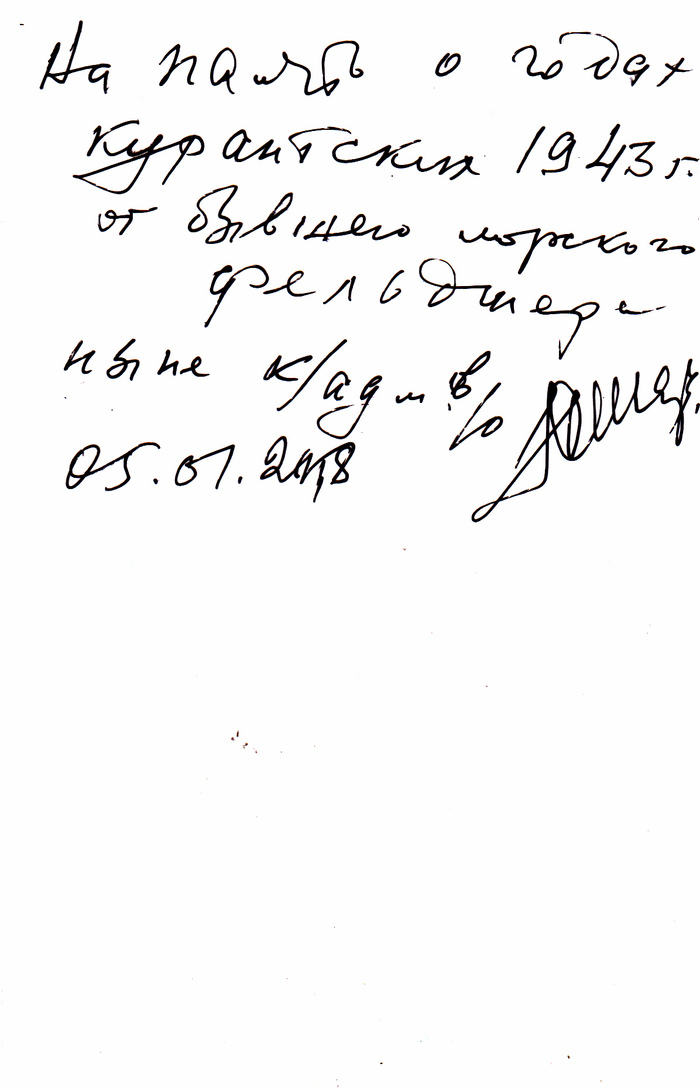 На память о годах
курсантских 1943 г.
от бывшего морского
фельдшера
ныне к/адм в/о
05.01.2018